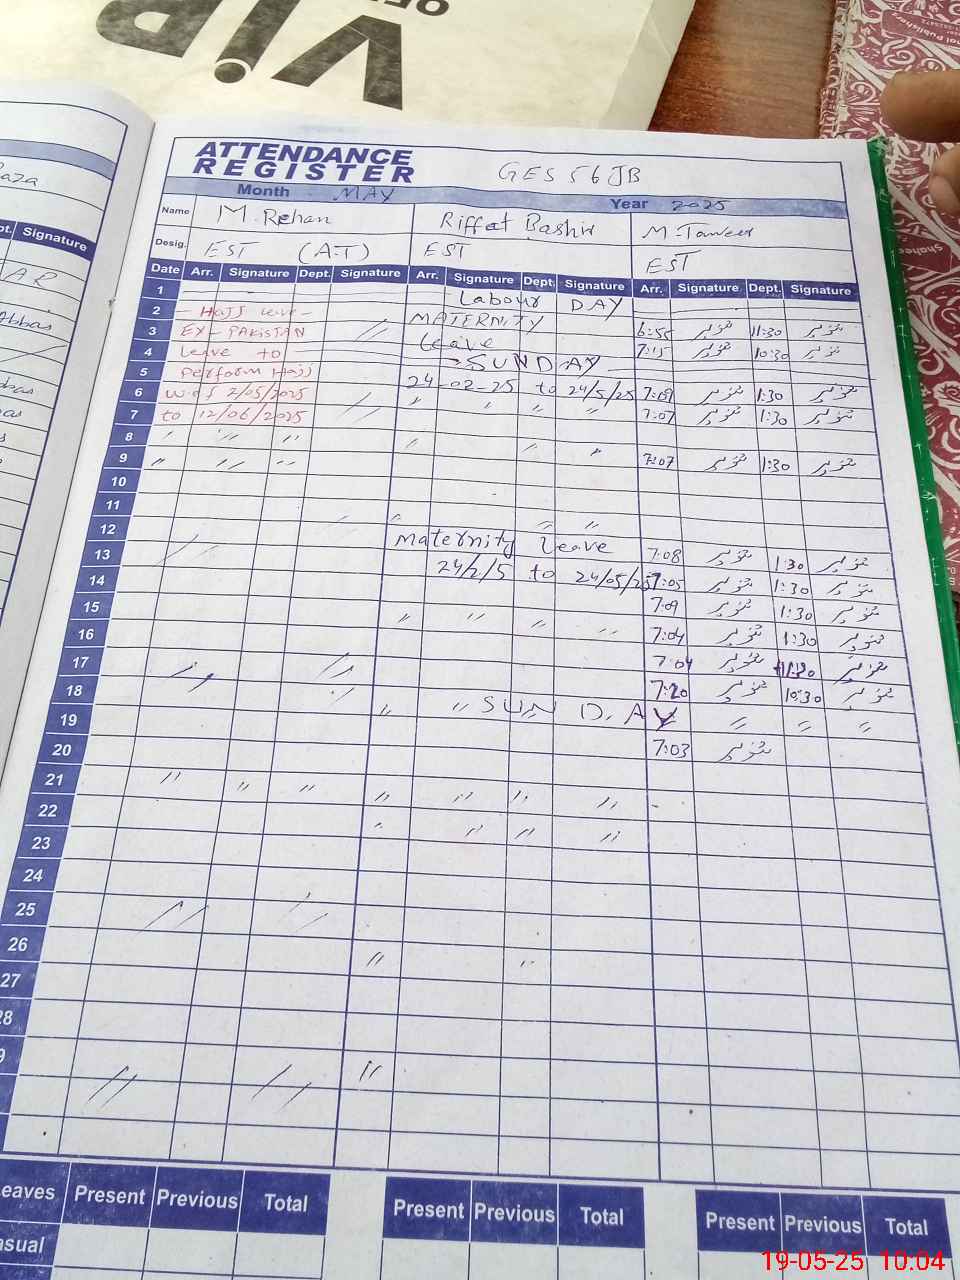 VIP
OF
ATTENDANCE
REGISTER
GES 56 JB
Month MAY Year 2025
Name M. Rehan Riffat Bashir M. Tanveer
Desig. EST (A.T) EST EST
Date Arr. Signature Dept. Signature Arr. Signature Dept. Signature Arr. Signature Dept. Signature
1 Labour DAY
2 Hajj leave MATERNITY 6:55 تنویر 11:30 تنویر
3 EX-PAKISTAN leave 7:15 تنویر 10:30 تنویر
4 leave to SUNDAY
5 Perform Hajj 24-02-25 to 24/5/25 7:09 تنویر 1:30 تنویر
6 w.e.f 2/05/2025 " " " " 7:07 تنویر 1:30 تنویر
7 to 12/06/2025
8 " " " " " " 7:07 تنویر 1:30 تنویر
9 " " "
10
11 " " "
12 Maternity leave 7:08 تنویر 1:30 تنویر
13 24/2/5 to 24/05/25 7:05 تنویر 1:30 تنویر
14 7:09 تنویر 1:30 تنویر
15 " " " " 7:04 تنویر 1:30 تنویر
16 7:04 تنویر 11:30 تنویر
17 7:20 تنویر 10:30 تنویر
18 " " SUNDAY " " "
19 7:03 تنویر
20
21 " " " " " " "
22 " " " "
23
24
25
26 "
27
28
Leaves Present Previous Total Present Previous Total Present Previous Total
19-05-25 10:04